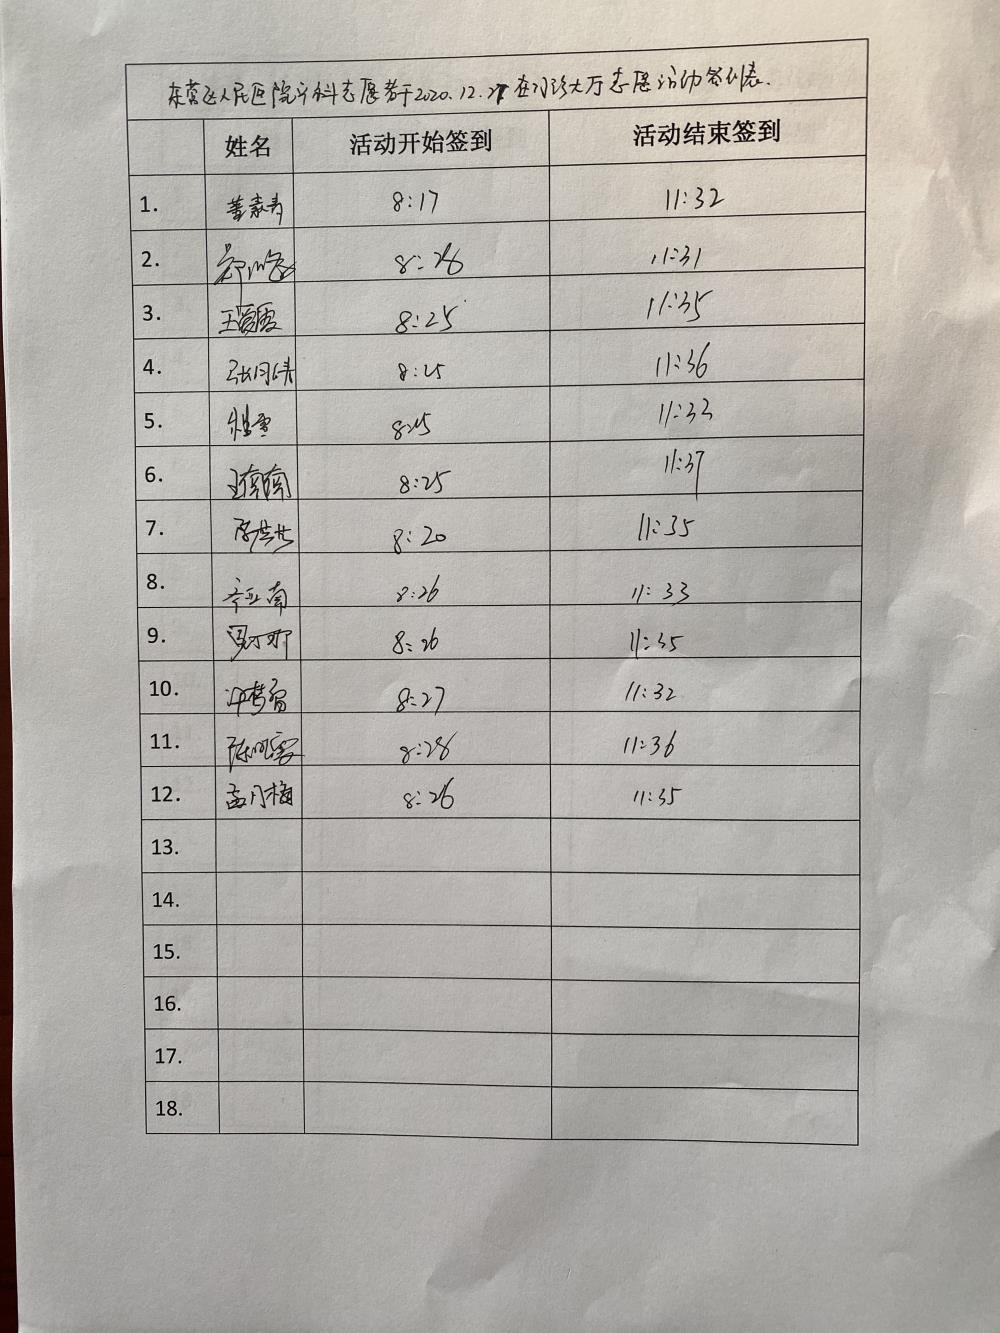 东营区人民医院产科志愿者于2020.12.27在门诊大厅志愿活动签到表.
姓名 活动开始签到 活动结束签到
1. 董素青 8:17 11:32
2. 8:26 11:31
3. 8:25 11:35
4. 8:25 11:36
5. 8:25 11:33
6. 王楠楠 8:25 11:37
7. 8:20 11:35
8. 亚南 8:26 11:33
9. 8:26 11:35
10. 8:27 11:32
11. 8:28 11:36
12. 孟月梅 8:26 11:35
13.
14.
15.
16.
17.
18.